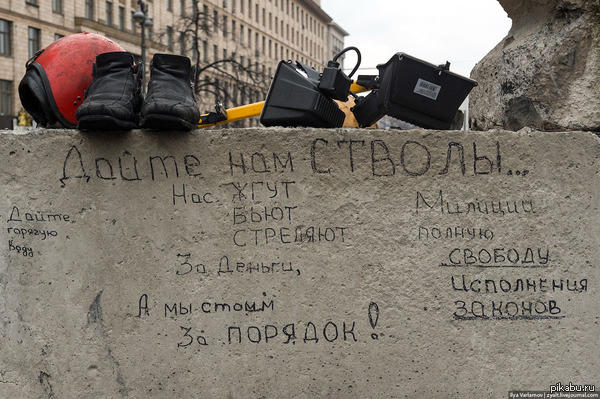 Дайте нам СТВОЛЫ...
Нас ЖГУТ
БЬЮТ
СТРЕЛЯЮТ
За Деньги,
А мы стоим
За ПОРЯДОК!
Дайте
горячую
воду
Милиции
полную
СВОБОДУ
Исполнения
ЗАКОНОВ
pikabu.ru
Ilya Varlamov | zyalt.livejournal.com